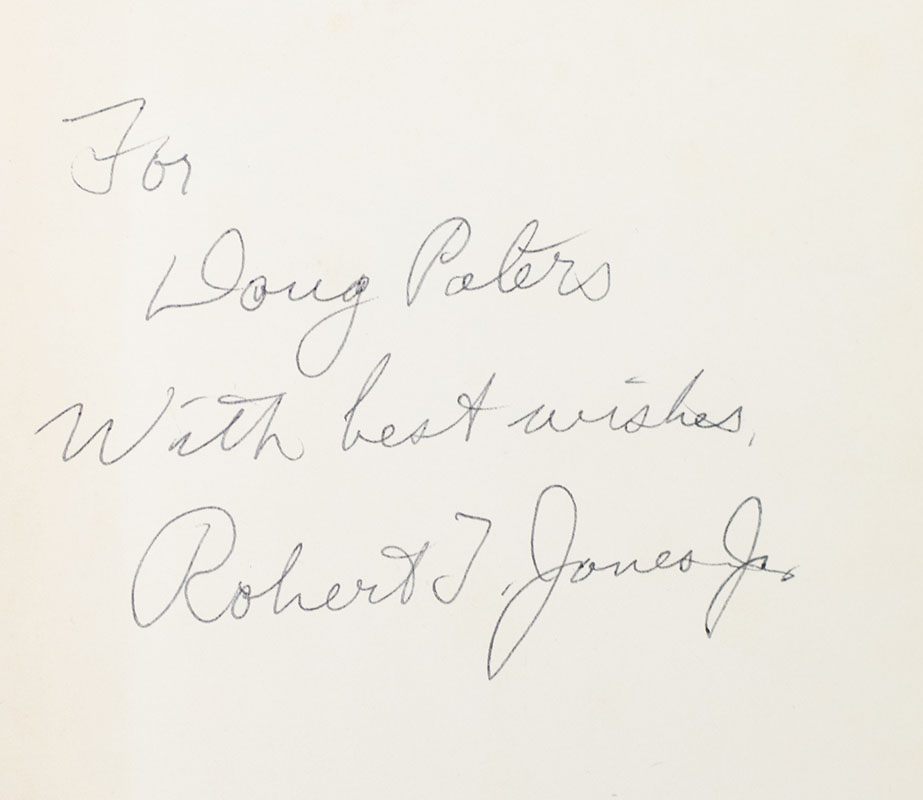 For
Doug Peters
With best wishes,
Robert T. Jones Jr